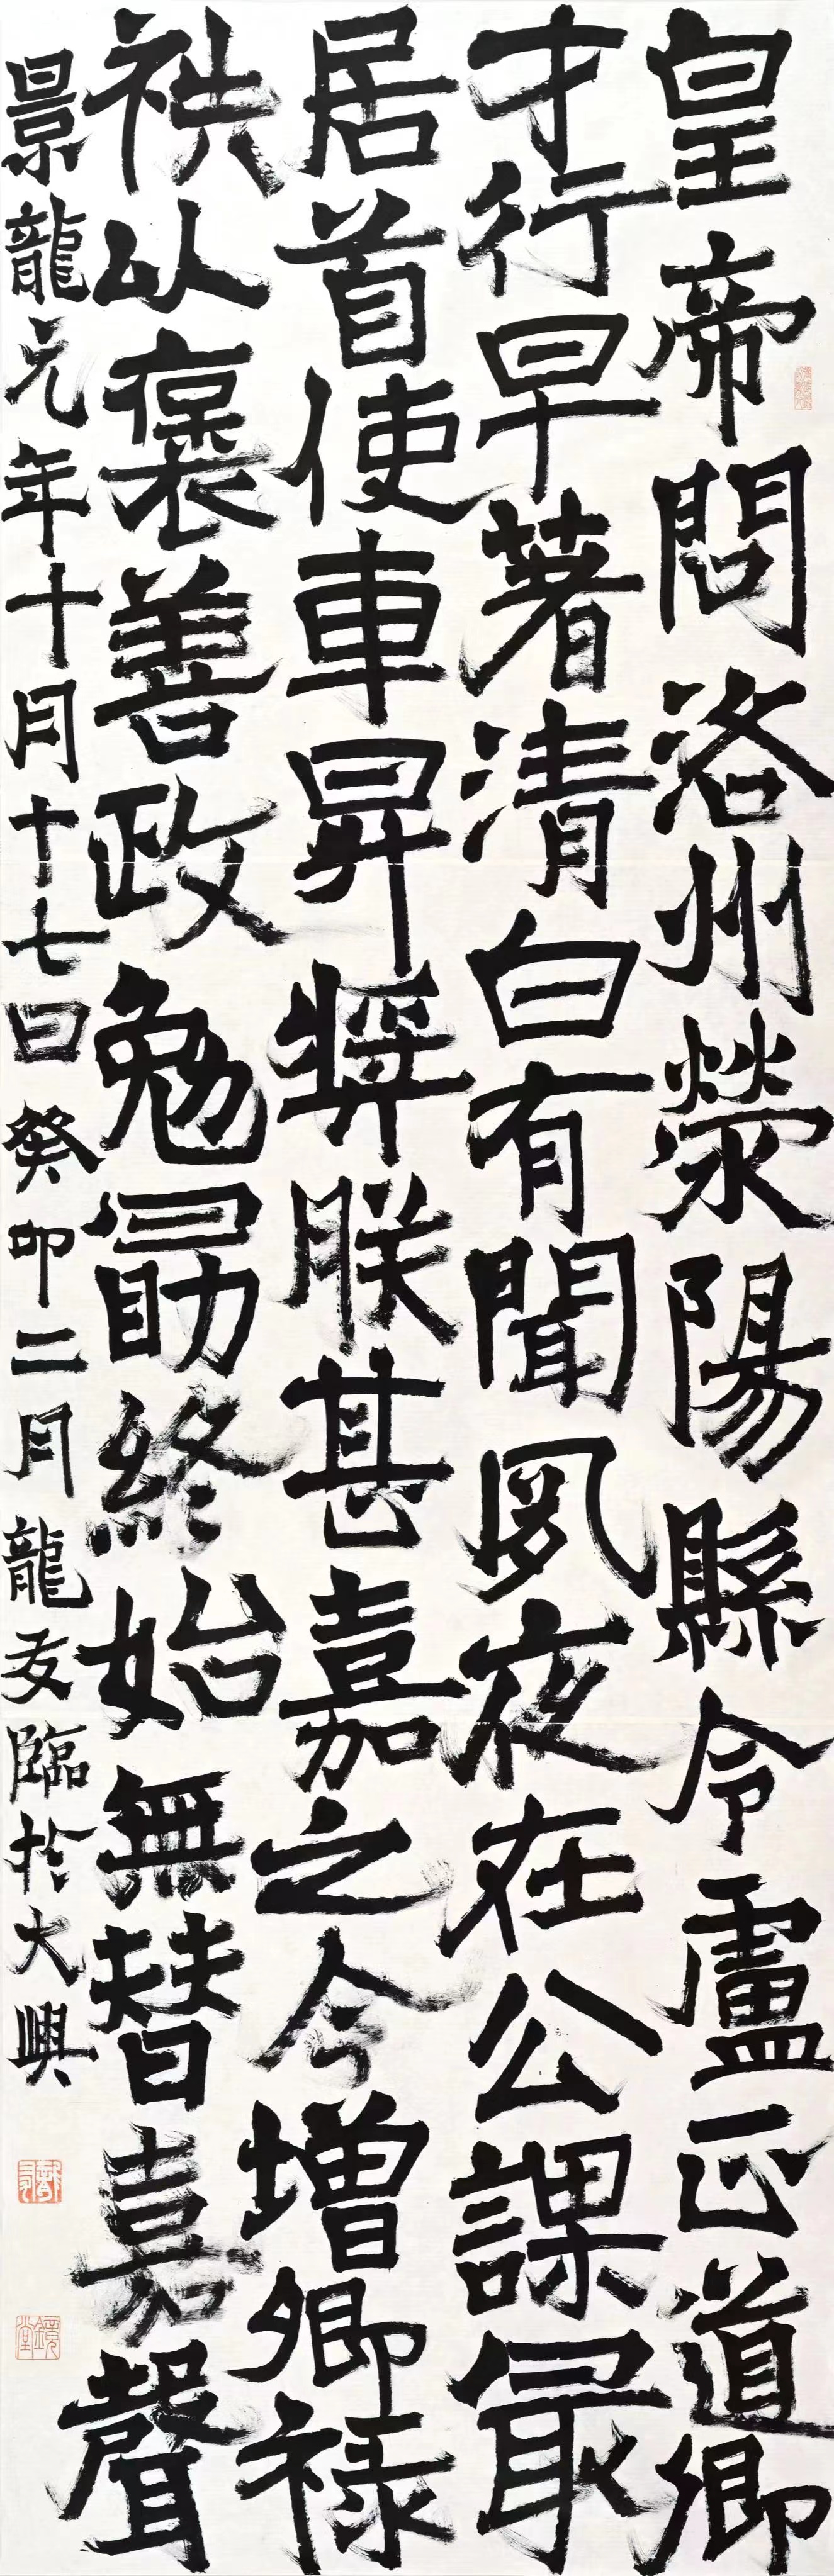 皇帝問洛州滎陽縣令盧正道卿
才行早著清白有聞夙夜在公課最
居首使車昇獎朕甚嘉之今增卿祿
袟以襃善政勉勗終始無替嘉聲
景龍元年十月十七日癸卯二月龍友臨於大興